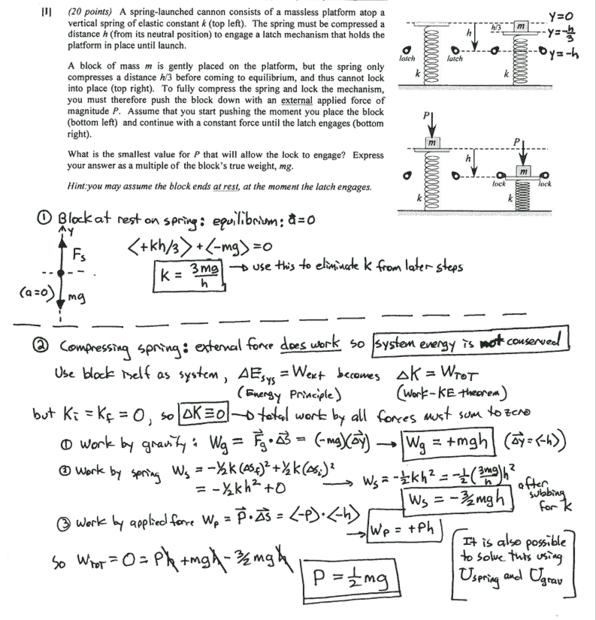 [1] (20 points) A spring-launched cannon consists of a massless platform atop a
vertical spring of elastic constant k (top left). The spring must be compressed a
distance h (from its neutral position) to engage a latch mechanism that holds the
platform in place until launch.
A block of mass m is gently placed on the platform, but the spring only
compresses a distance h/3 before coming to equilibrium, and thus cannot lock
into place (top right). To fully compress the spring and lock the mechanism,
you must therefore push the block down with an external applied force of
magnitude P. Assume that you start pushing the moment you place the block
(bottom left) and continue with a constant force until the latch engages (bottom
right).
What is the smallest value for P that will allow the lock to engage? Express
your answer as a multiple of the block's true weight, mg.
Hint: you may assume the block ends at rest, at the moment the latch engages.
h
h/3
m
y=0
y=-h/3
y=-h
latch
latch
k
k
P
m
h
P
m
lock
lock
k
k
① Block at rest on spring: equilibrium: a⃗=0
y
Fs
(a=0)
mg
<+kh/3> + <-mg> = 0
k = 3mg/h → use this to eliminate k from later steps
② Compressing spring: external force does work so system energy is not conserved
Use block itself as system, ΔEsys = Wext becomes ΔK = WTOT
(Energy Principle) (Work-KE theorem)
but Ki = Kf = 0, so ΔK≡0 → total work by all forces must sum to zero
① Work by gravity: Wg = F⃗g·Δs⃗ = (-mg)(Δy) → Wg = +mgh (Δy⃗=<-h>)
② Work by spring Ws = -½k(Δsf)²+½k(Δsi)² → Ws = -½kh² = -½(3mg/h)h²
= -½kh²+0
Ws = -3/2mgh
after subbing for k
③ Work by applied force Wp = P⃗·Δs⃗ = <-P>·<-h> → Wp = +Ph
So WTOT = 0 = Ph + mgh - 3/2mgh
P = ½mg
It is also possible
to solve this using
Uspring and Ugrav